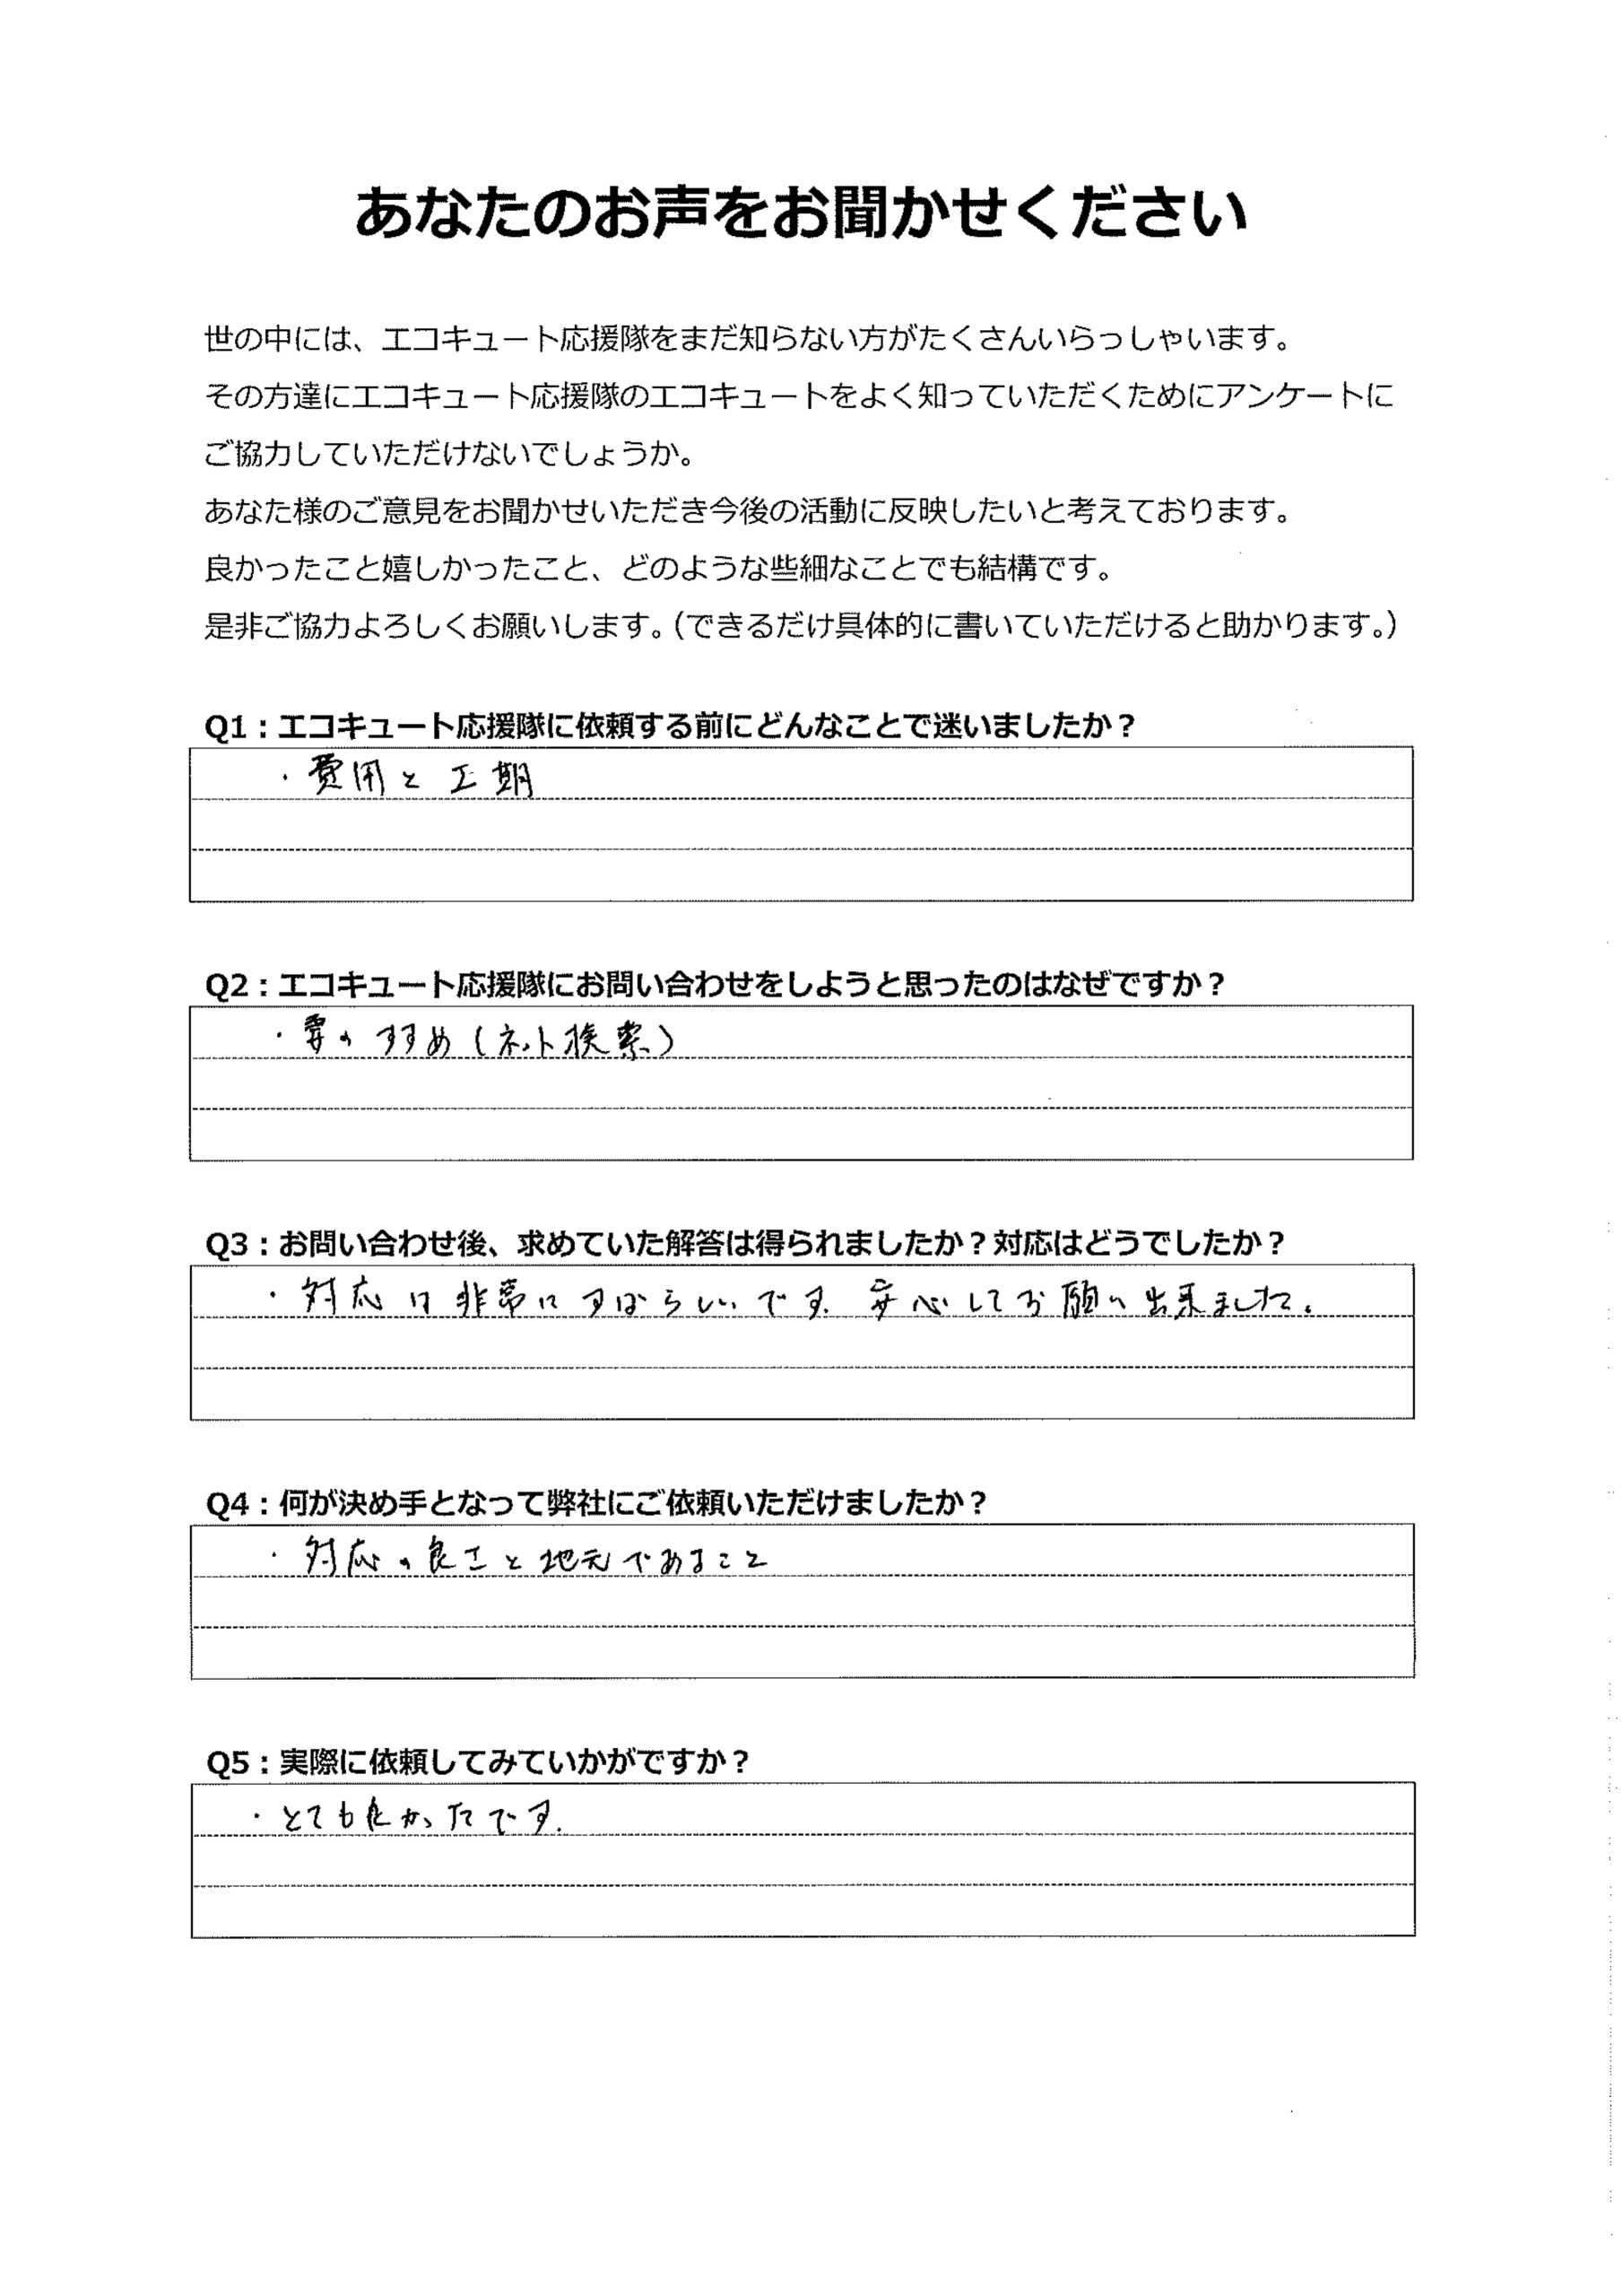 あなたのお声をお聞かせください
世の中には、エコキュート応援隊をまだ知らない方がたくさんいらっしゃいます。
その方達にエコキュート応援隊のエコキュートをよく知っていただくためにアンケートに
ご協力していただけないでしょうか。
あなた様のご意見をお聞かせいただき今後の活動に反映したいと考えております。
良かったこと嬉しかったこと、どのような些細なことでも結構です。
是非ご協力よろしくお願いします。（できるだけ具体的に書いていただけると助かります。）
Q1：エコキュート応援隊に依頼する前にどんなことで迷いましたか？
・費用と工期
Q2：エコキュート応援隊にお問い合わせをしようと思ったのはなぜですか？
・妻のすすめ（ネット検索）
Q3：お問い合わせ後、求めていた解答は得られましたか？対応はどうでしたか？
・対応は非常にすばらしいです。安心してお願い出来ました。
Q4：何が決め手となって弊社にご依頼いただけましたか？
・対応の良さと地元であること
Q5：実際に依頼してみていかがですか？
・とても良かったです。